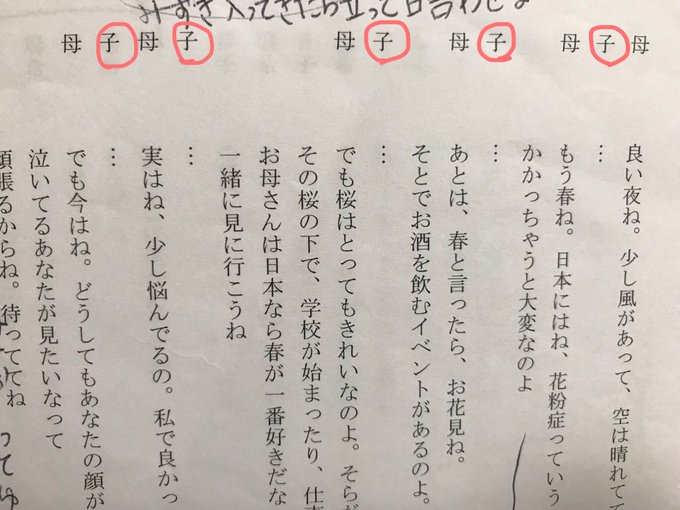 みずき入ってきたら立って
母 良い夜ね。少し風があって、空は晴れてて
子 …
母 もう春ね。日本にはね、花粉症っていう
かかっちゃうと大変なのよ
子 …
母 あとは、春と言ったら、お花見ね。
そとでお酒を飲むイベントがあるのよ。
子 …
母 でも桜はとってもきれいなのよ。そらが
その桜の下で、学校が始まったり、仕事
お母さんは日本なら春が一番好きだな
一緒に見に行こうね
子 …
母 実はね、少し悩んでるの。私で良かっ
子 …
母 でも今はね。どうしてもあなたの顔が
泣いてるあなたが見たいなって
頑張るからね。待っててね